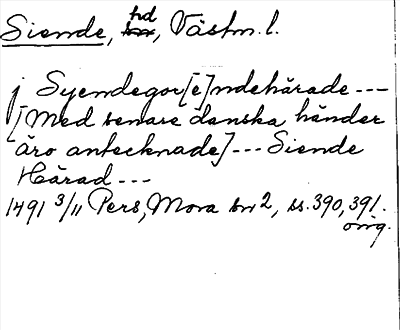 Siende, hd, Västm. l.
j Syendegor[e]ndehärade ---
[Med senare danska händer
äro antecknade] --- Siende
Härad ---
1491 3/11 Pers, Mora br 2, ss. 390, 391.
orig.